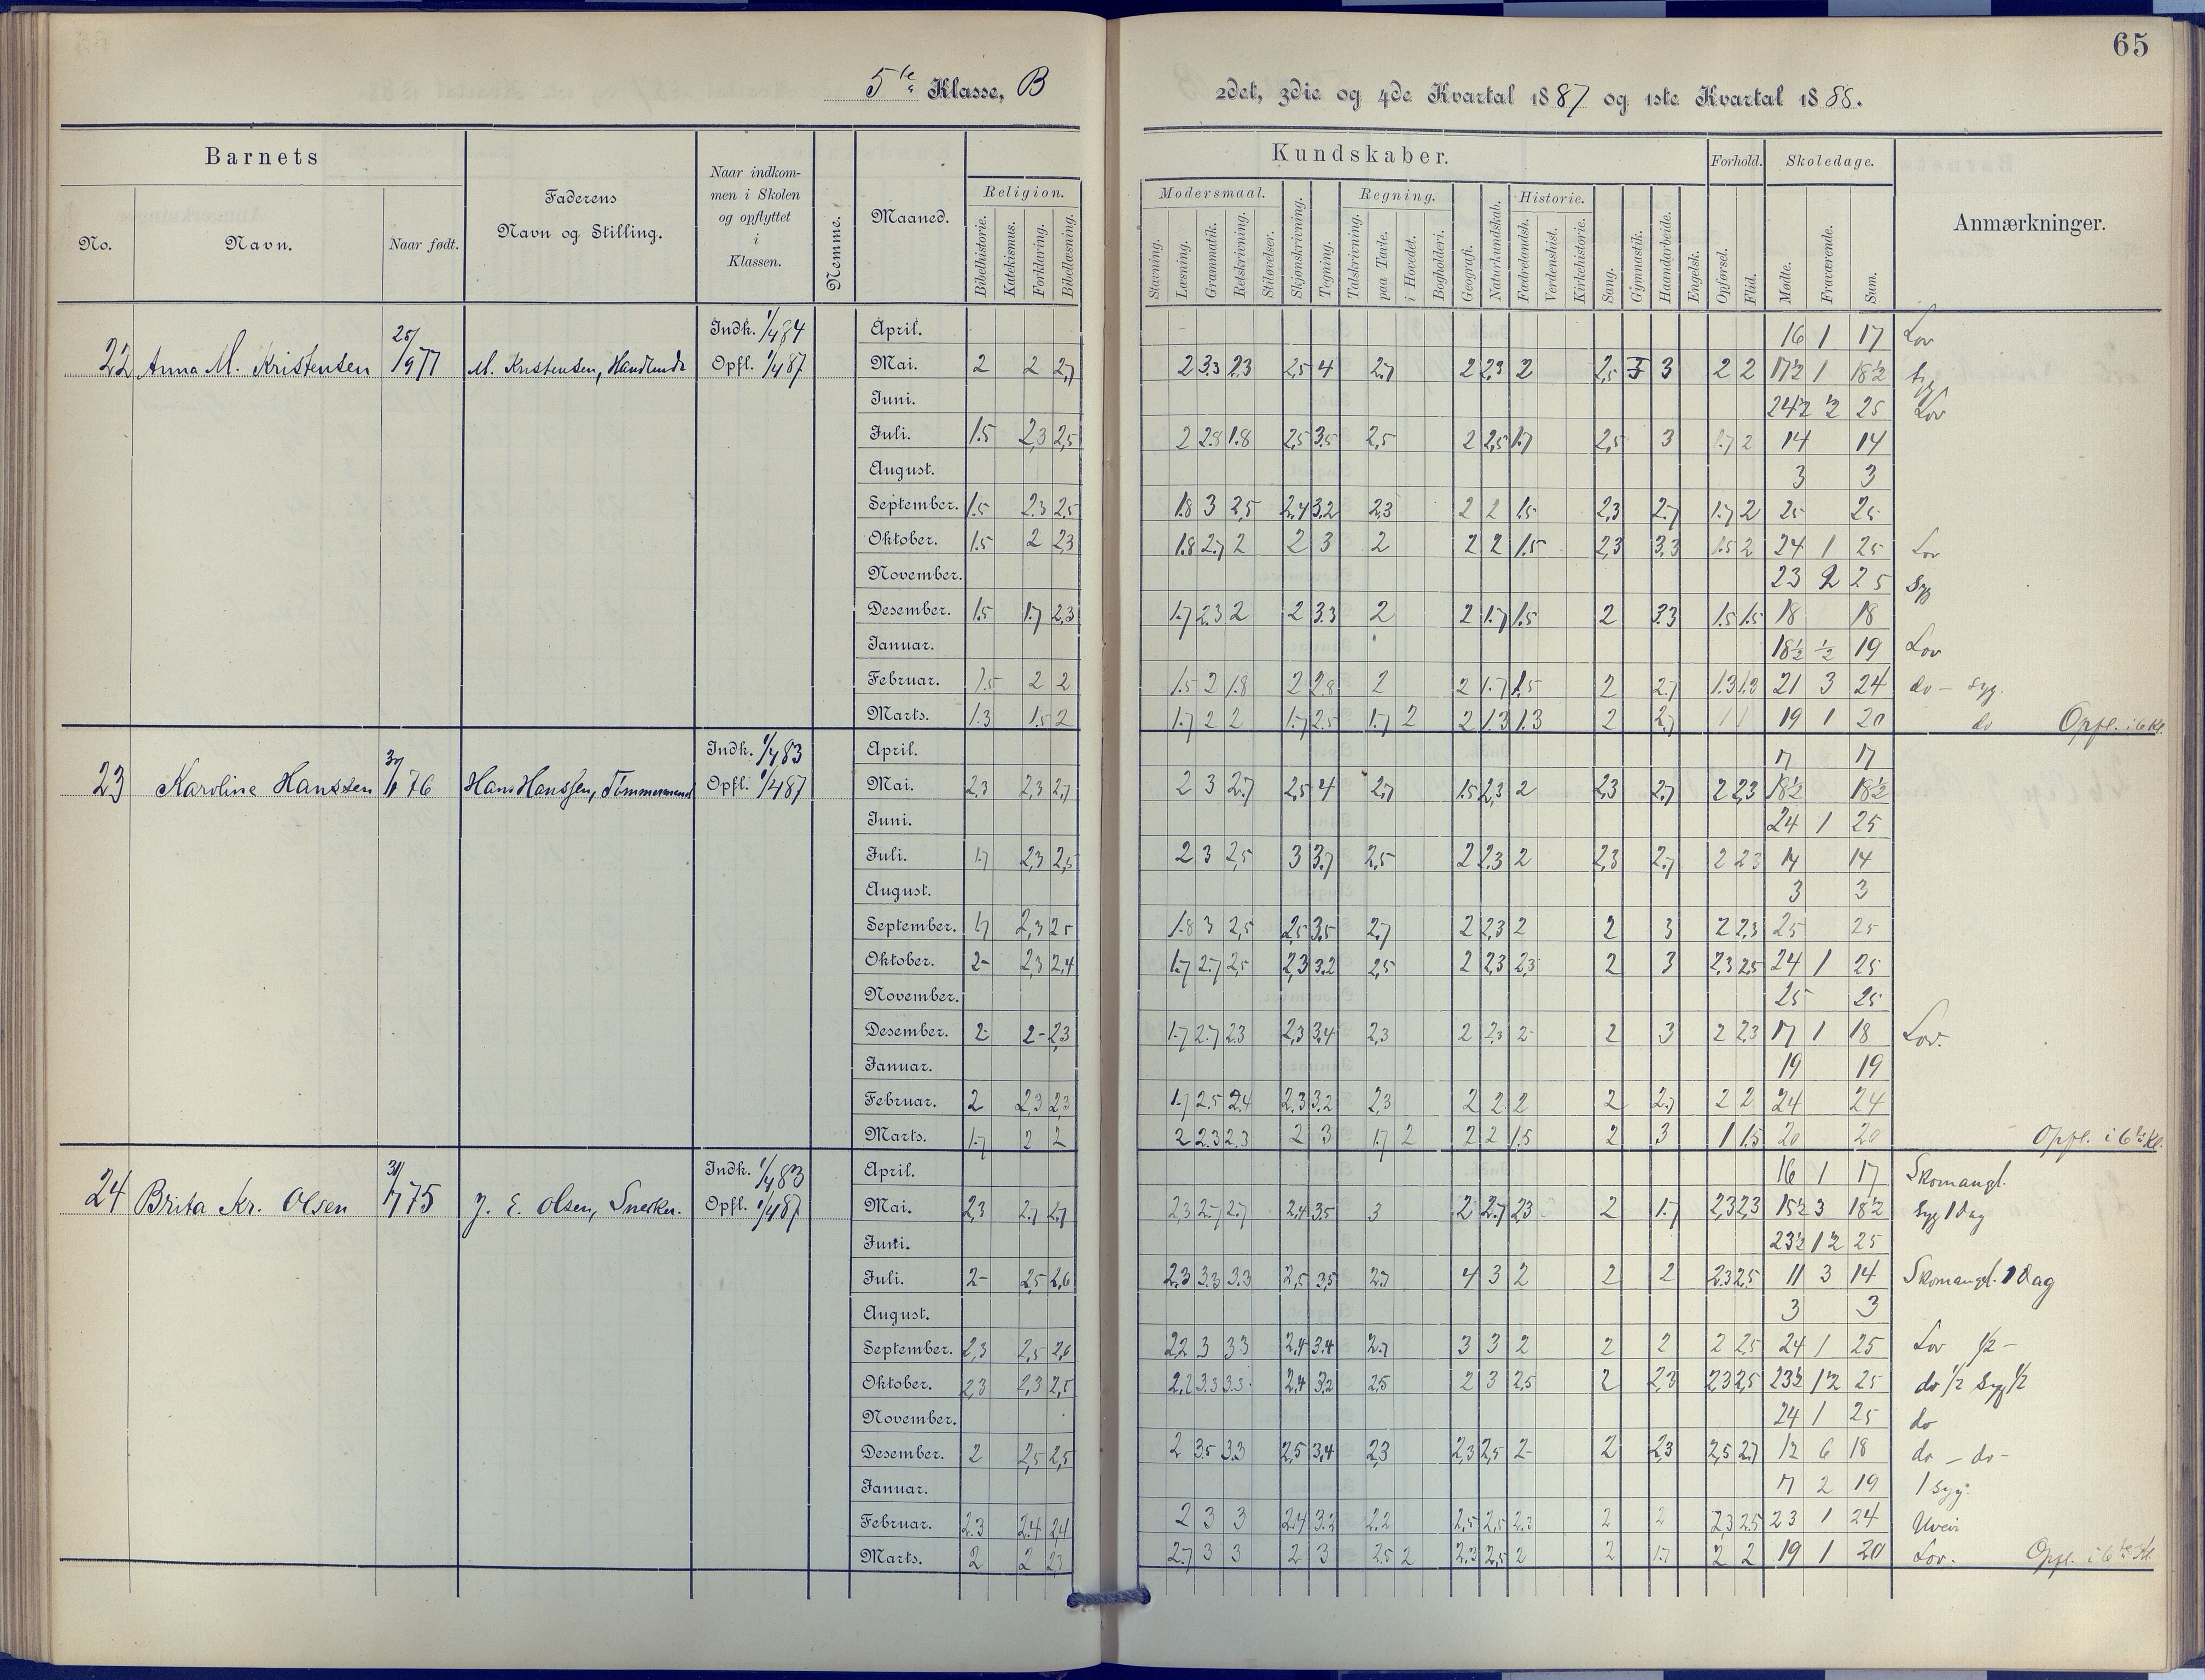 65
5te Klasse, B
2det, 3die og 4de Kvartal 1887 og 1ste Kvartal 1888.
Barnets
No.
Navn.
Naar født.
Faderens
Navn og Stilling.
Naar indkom-
men i Skolen
og opflyttet
i
Klassen.
Nemme.
Maaned.
Religion.
Bibelhistorie.
Katekismus.
Forklaring.
Bibellæsning.
Kundskaber.
Modersmaal.
Stavning.
Læsning.
Grammatik.
Retskrivning.
Stiløvelser.
Skjønskrivning.
Tegning.
Regning.
Talskrivning.
paa Tavle.
i Hovedet.
Bogholderi.
Geografi.
Naturkundskab.
Historie.
Fædrelandsh.
Verdenshist.
Kirkehistorie.
Sang.
Gymnastik.
Haandarbeide.
Engelsk.
Forhold.
Opførsel.
Flid.
Skoledage.
Mødte.
Fraværende.
Sum.
Anmærkninger.
22 Anna M. Kristensen 25/9 77 M. Kristensen, Indk. 1/4 84 Opfl. 1/4 87
April. 16 1 17 Lov
Mai. 2 2 2,7 2 3.3 2.3 2,5 4 2.7 2 2,3 2 2,5 3 2 2 17½ 1 18½ Syg
Juni. 24½ ½ 25 Lov
Juli. 1.5 2,3 2,5 2 2.8 1.8 2,5 3.5 2,5 2 2,5 1.7 2,5 3 1.7 2 14 14
August. 3 3
September. 1.5 2.3 2.5 1.8 3 2,5 2,4 3.2 2,3 2 2 1.5 2,3 2.7 1.7 2 25 25
Oktober. 1.5 2 2,3 1.8 2.7 2 2 3 2 2 2 1.5 2,3 3,3 1.5 2 24 1 25 Lov
November. 23 2 25 Syg
Desember. 1.5 1.7 2,3 1.7 2.3 2 2 3.3 2 2 1.7 1.5 2 3.3 1.5 1.5 18 18
Januar. 18½ ½ 19 Lov
Februar. 1.5 2 2 1.5 2 1.8 2 2.8 2 2 1.7 1.5 2 2.7 1.3 1.3 21 3 24 do - syg.
Marts. 1.3 1.5 2 1.7 2 2 1.7 2.5 1.7 2 2 1.3 1.3 2 2.7 1 1 19 1 20 do Opfl. i 6 Kl.
23 Karoline Hanssen 76 Hans Hanssen, Tømmermand Indk. 1/4 83 Opfl. 1/4 87
April. 17 17
Mai. 2,3 2,3 2,7 2 3 2.7 2,5 4 2.7 1.5 2,3 2 2,3 2.7 2 2,3 18½ 18½
Juni. 24 1 25
Juli. 1.7 2,3 2,5 2 3 2,5 3 3.7 2,5 2 2.3 2 2,3 2.7 2 2.3 14 14
August. 3 3
September. 1.7 2,3 2.5 1.8 3 2,5 2,5 3.5 2.7 2 2,3 2 2 3 2 2,3 25 25
Oktober. 2- 2,3 2,4 1.7 2.7 2,5 2,3 3.2 2,5 2 2,3 2,3 2 3 2,3 2.5 24 1 25
November. 25 25
Desember. 2- 2- 2,3 1.7 2.7 2.3 2,3 3,4 2,3 2 2,3 2- 2 3 2 2,3 17 1 18 Lov.
Januar. 19 19
Februar. 2 2,3 2,3 1.7 2.5 2.4 2.3 3.2 2,3 2 2 2 2 2.7 2 2 24 24
Marts. 1.7 2 2 2 2.3 2.3 2 3 1.7 2 2 2 1.5 2 3 1 1.5 20 20 Opfl. i 6te Kl.
24 Brita Kr. Olsen 75 J. E. Olsen, Snekker. Indk. 1/4 83 Opfl. 1/4 87
April. 16 1 17 Skomangl.
Mai. 2,3 2.7 2.7 2.3 2.7 2.7 2.4 3.5 3 2 2.7 2,3 2 1.7 2,3 2,3 15½ 3 18½ Syg 1 Dag
Juni. 23½ 1½ 25
Juli. 2- 2,5 2,6 2.3 3.3 3.3 2,5 3.5 2.7 4 3 2 2 2 2.3 2,5 11 3 14 Skomangl. 1 Dag
August. 3 3
September. 2,3 2,5 2,6 2,2 3 3.3 2,4 3.4 2.7 3 3 2 2 2 2 2,5 24 1 25 Lov ½ -
Oktober. 2,3 2,3 2,5 2,2 3.3 3.3 2,4 3,2 2,5 2 3 2,5 2 2,3 2,3 2,5 23½ 1½ 25 do ½ Syg ½
November. 24 1 25 do
Desember. 2 2,5 2,5 2 3.5 3.3 2,5 3,4 2,3 2,3 2,5 2- 2 2,3 2,5 2.7 12 6 18 do - do -
Januar. 17 2 19 1 syg.
Februar. 2.3 2.4 2.4 2 3 3 2.4 3.2 2.2 2,5 2,5 2.3 2 2 2,3 2.5 23 1 24 Uveir
Marts. 2 2 2,3 2.7 3 3 2 3 2.5 2 2.3 2,5 2 2 1.7 2 2 19 1 20 Lov. Opfl. i 6te Kl.